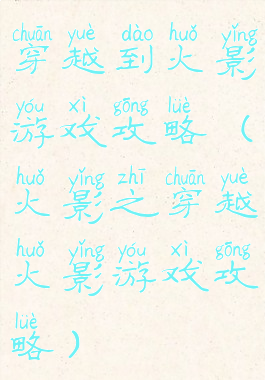 chuān yuè dào huǒ yǐng
穿越到火影
yóu xì gōng lüè
游戏攻略（
huǒ yǐng zhī chuān yuè
火影之穿越
huǒ yǐng yóu xì gōng
火影游戏攻
lüè
略）